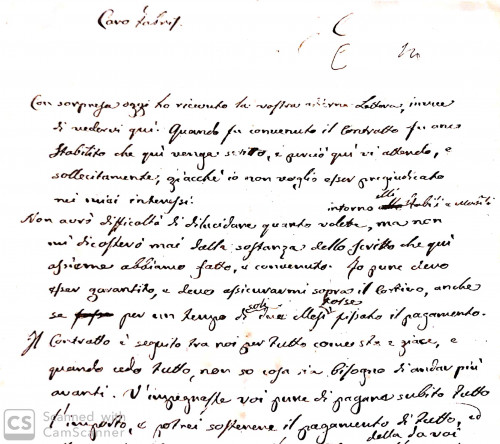 Caro Fabris.
Con sorpresa oggi ho ricevuto la vostra Lettera, invece
di vedervi quì. Quando fu convenuto il Contratto fu anco
stabilito che quì venga scritto, e perciò quì vi attendo, e
sollecitamente, giacchè io non voglio esser pregiudicato
nei miei interessi.
intorno alli Stabili e
Non avrò difficoltà di dilucidare quanto volete, ma non
mi dicosterò mai dalla sostanza dello scritto che quì
assieme abbiamo fatto, e convenuto. Io pure devo
esser garantito, e devo assicurarmi sopra il, anche
se per un tempo di soli due Mesi forse fissato il pagamento.
Il Contratto è seguito tra noi per tutto come sta e giace, e
quando cedo tutto, non so cosa sia bisogno di andar più
avanti. V'impegnaste voi pure di pagare subito tutto
l'importo, e potrei sostenere il pagamento di tutto, ed
della da voi
CS Scanned with
CamScanner